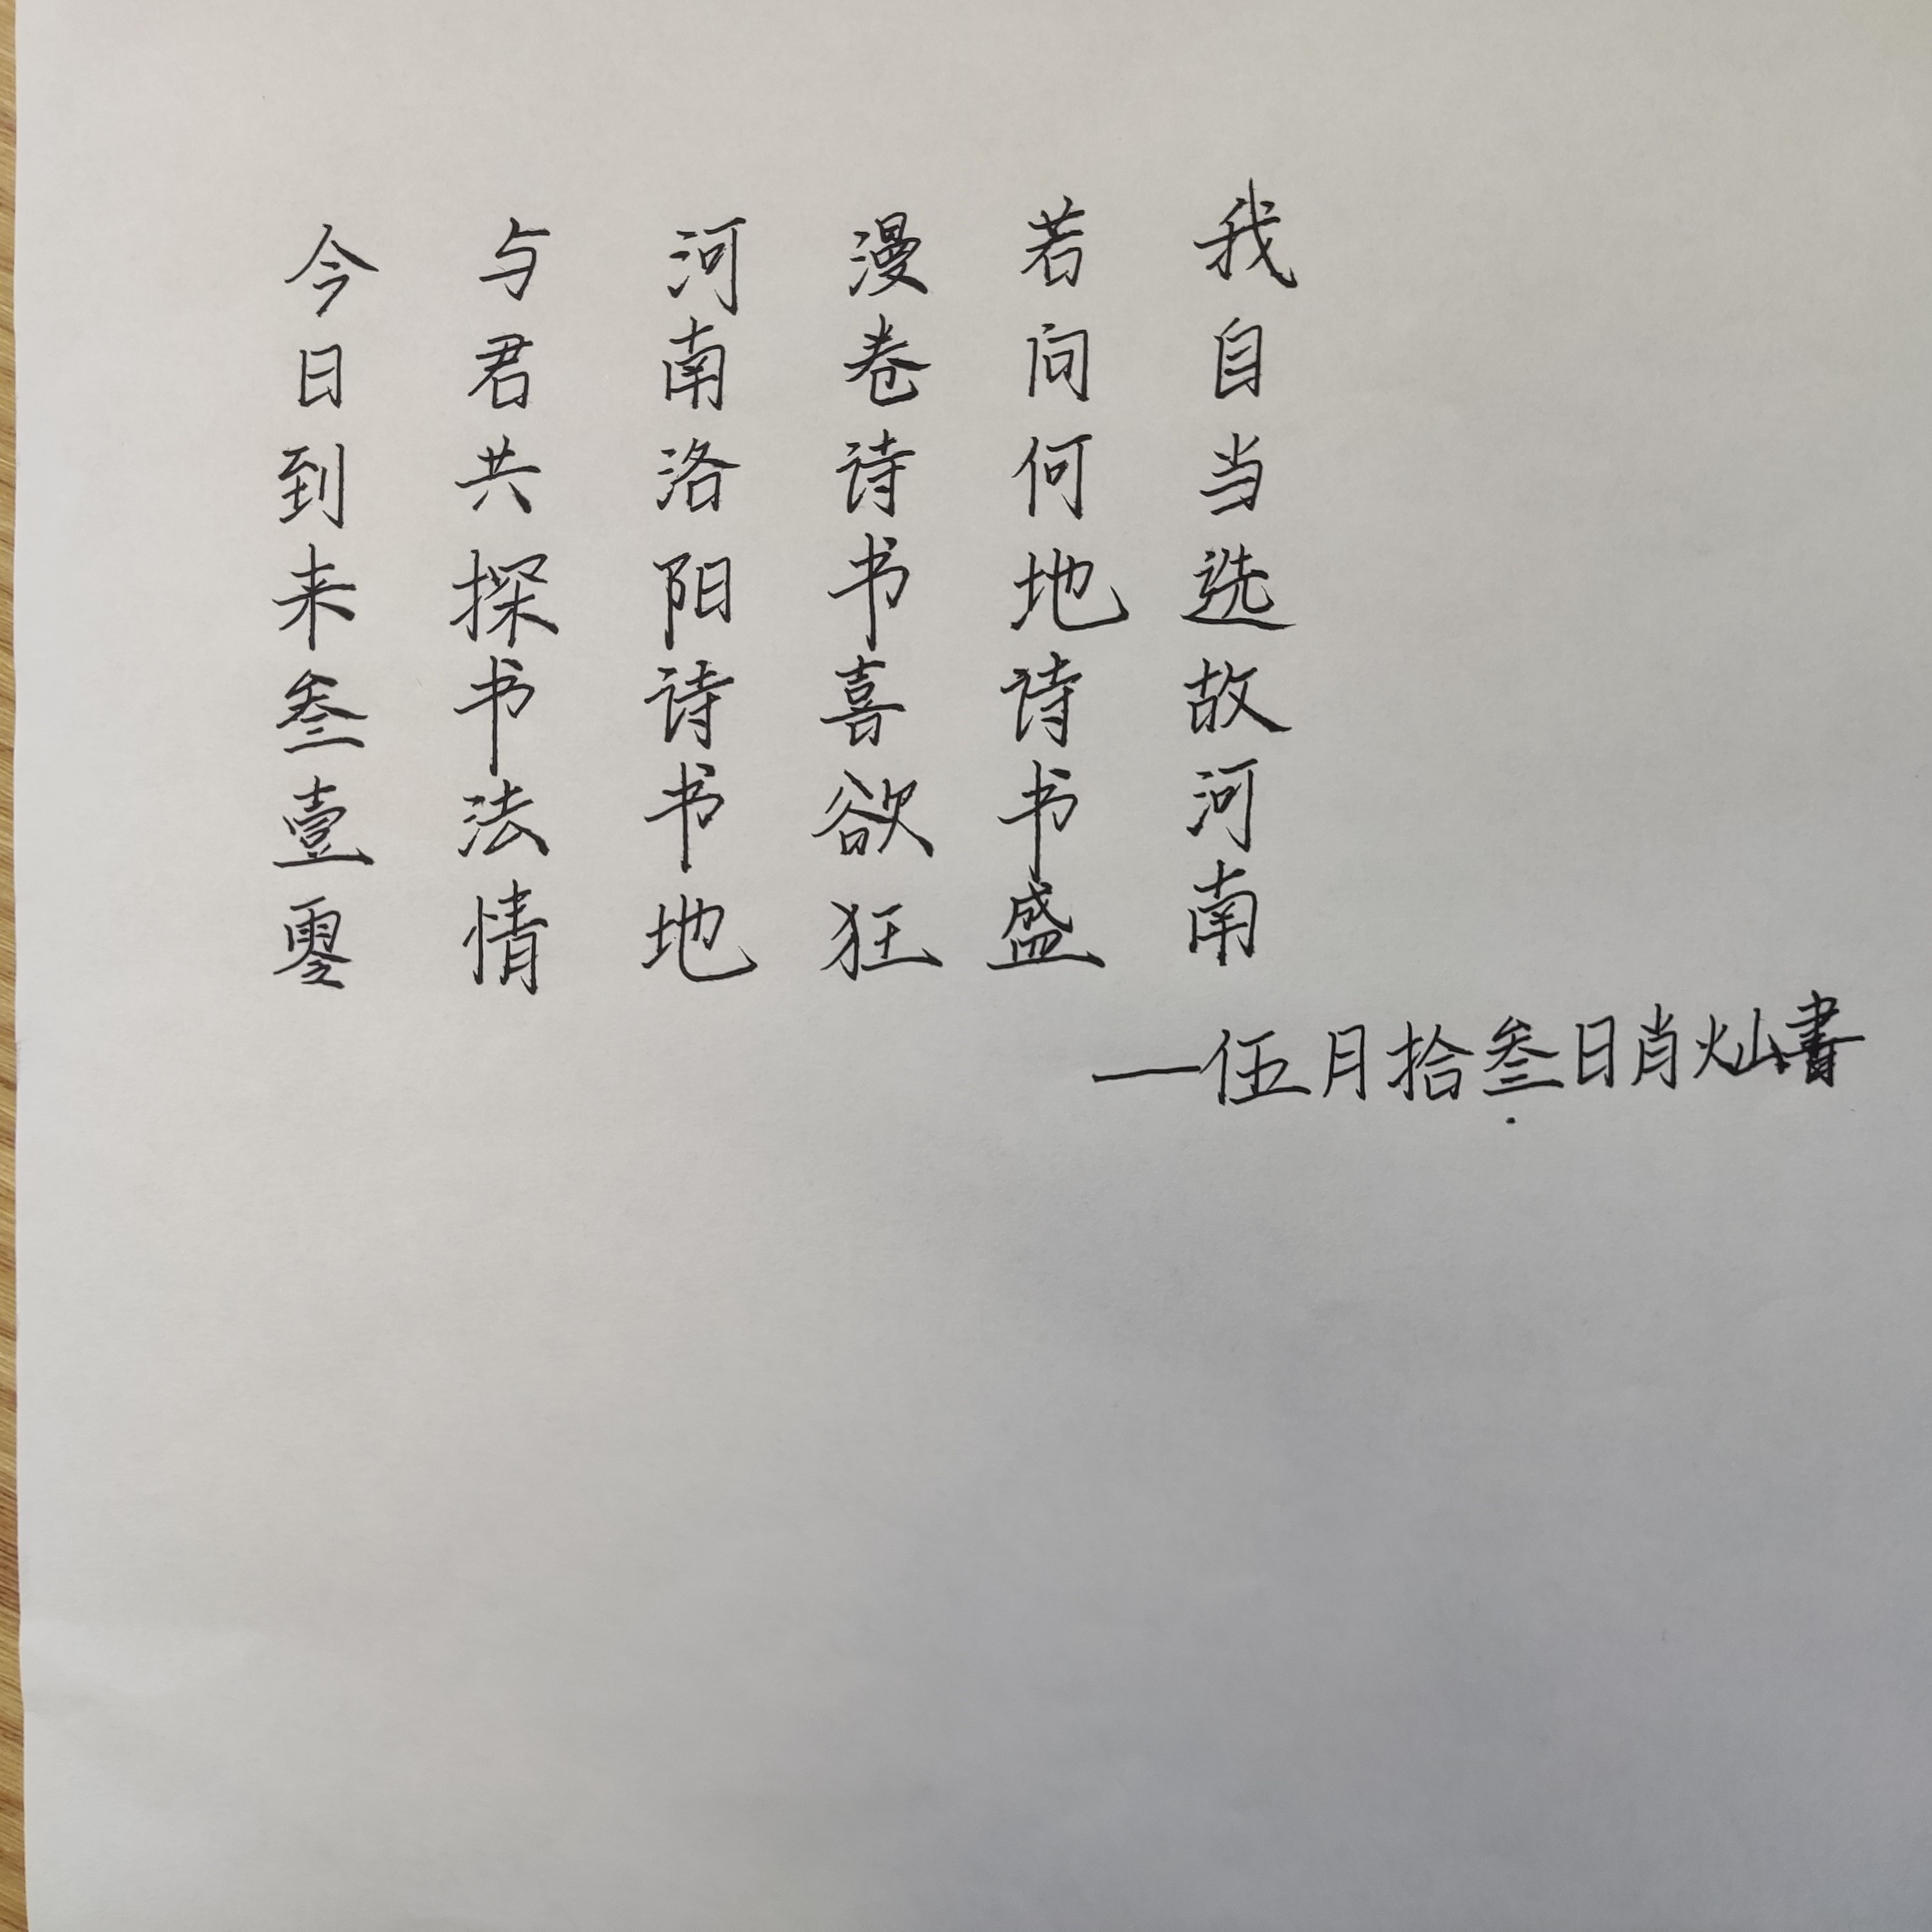 今日到来叁壹零
与君共探书法情
河南洛阳诗书地
漫卷诗书喜欲狂
若问何地诗书盛
我自当选故河南
—伍月拾叁日肖灿書